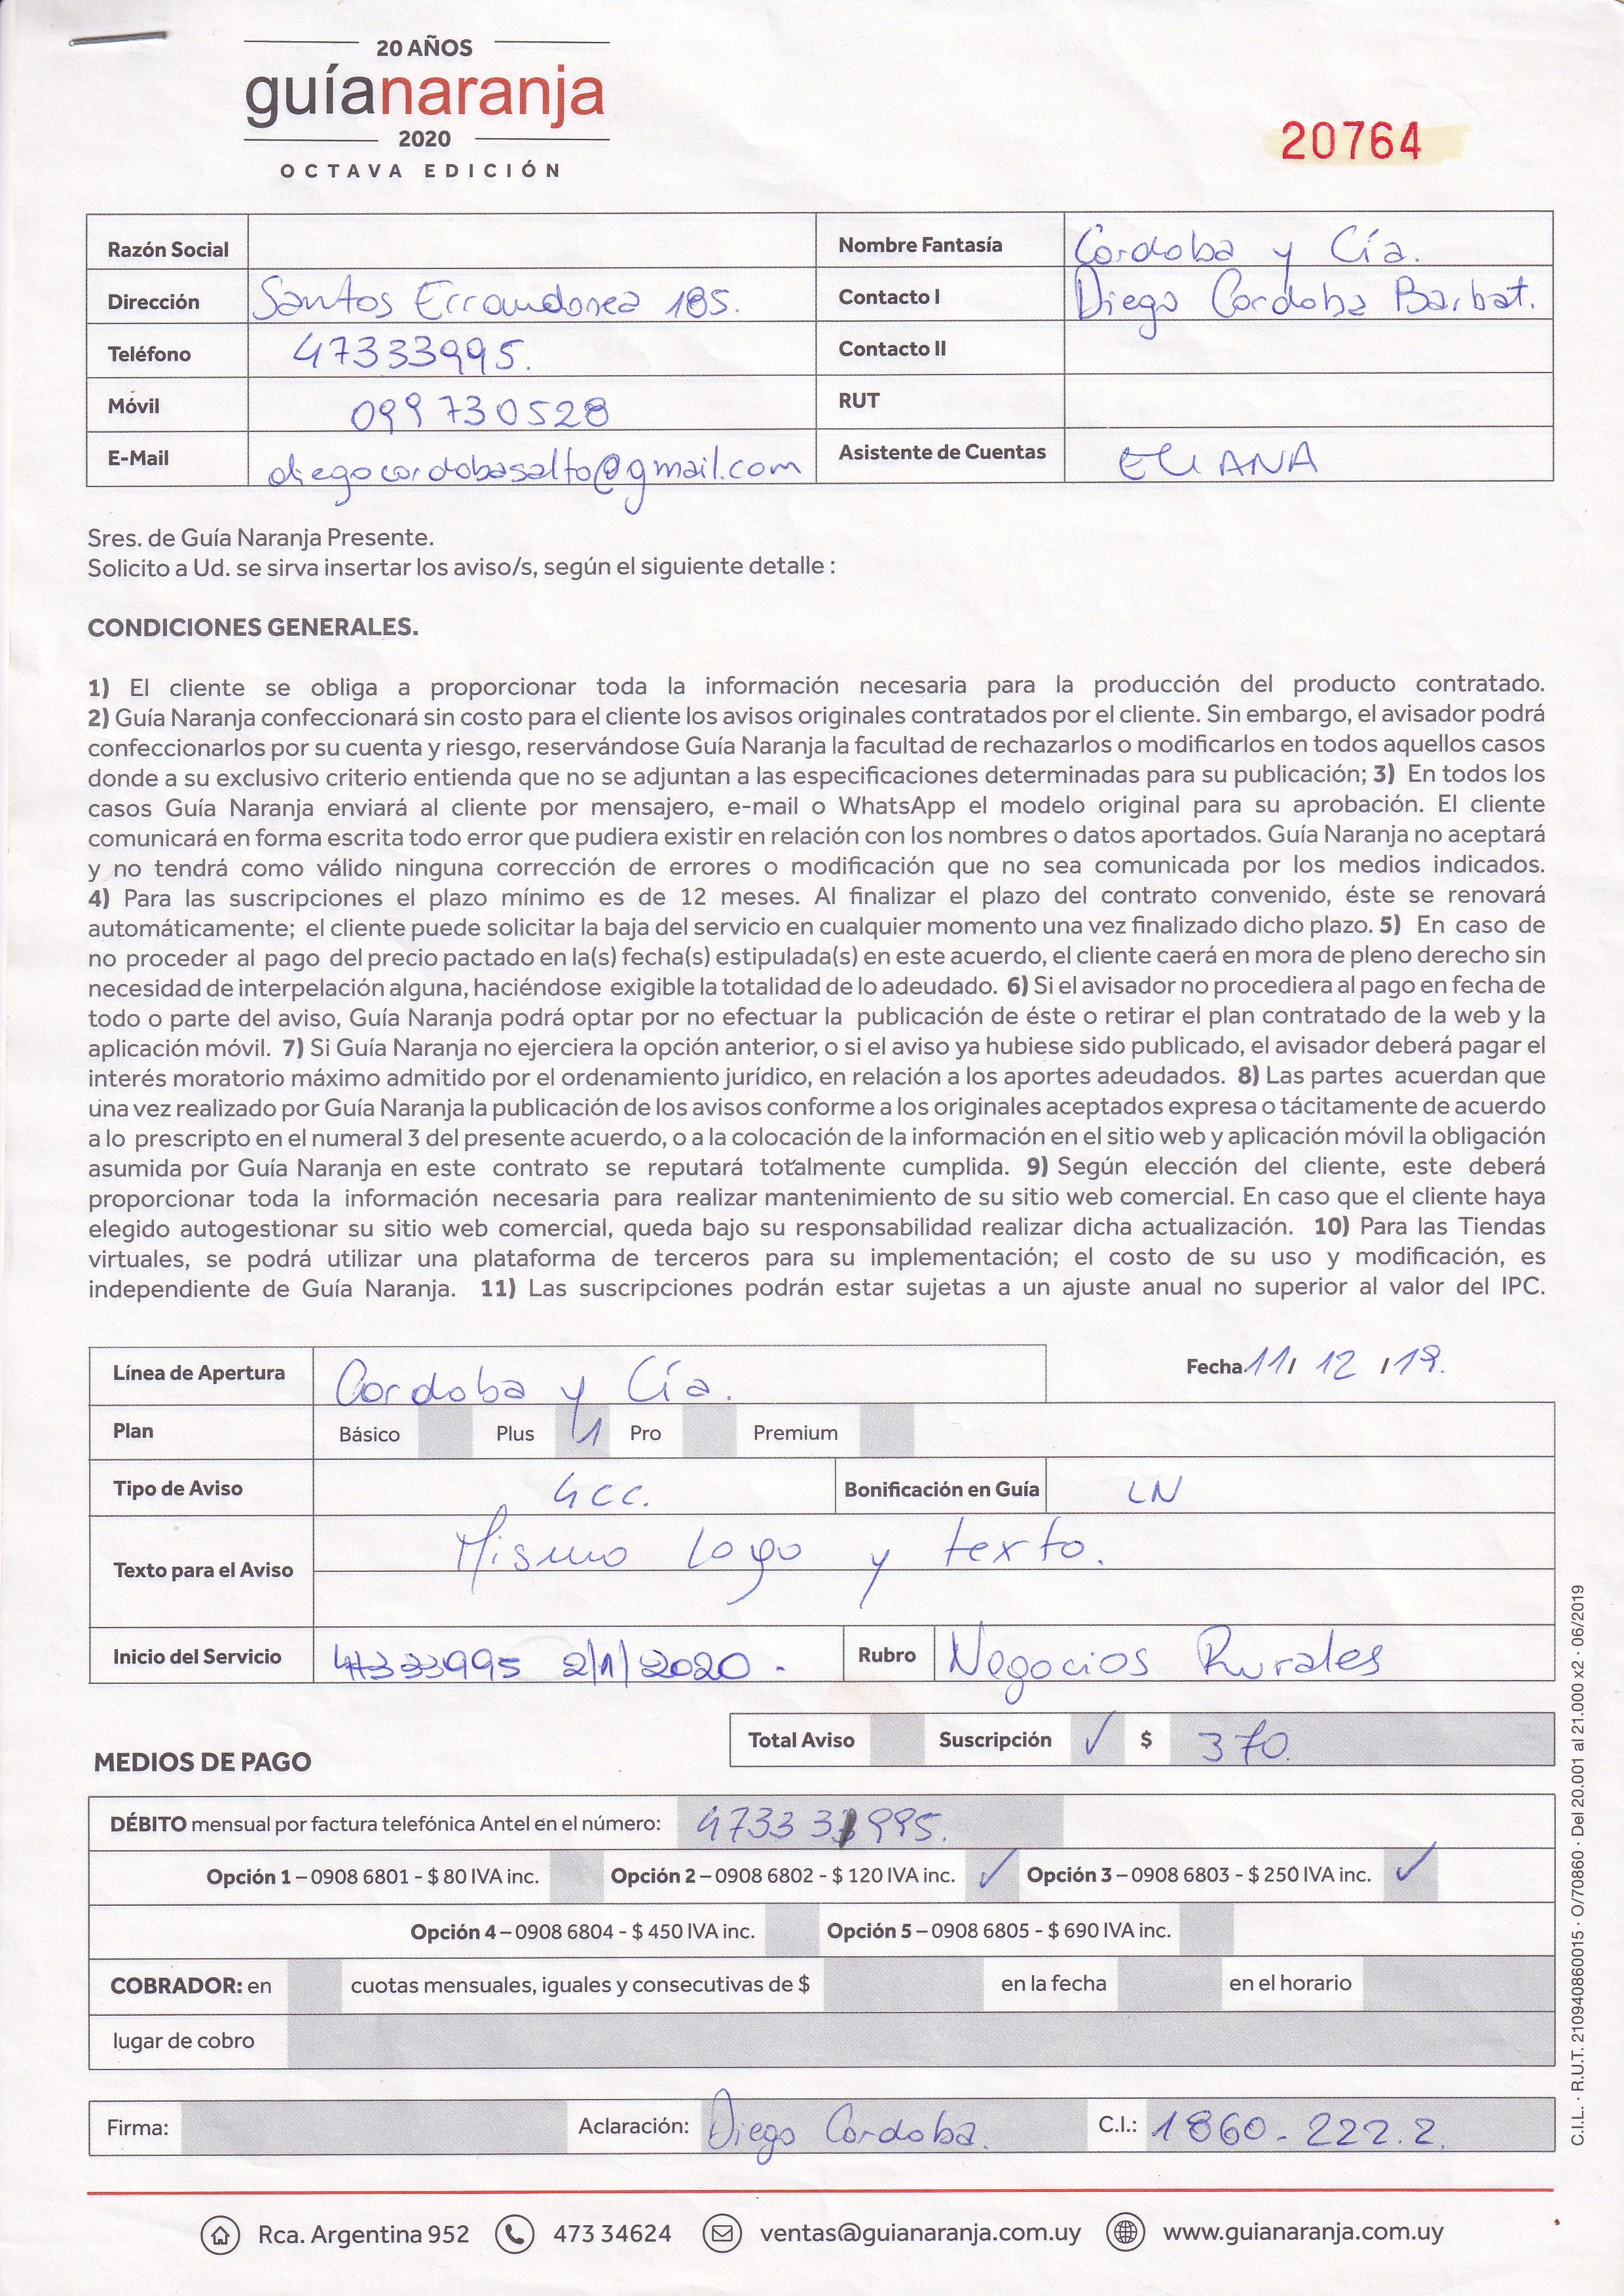 20 AÑOS
guíanaranja
2020
OCTAVA EDICIÓN
20764
Razón Social
Nombre Fantasía Cordoba y Cía.
Dirección Santos Errandonea 185.
Contacto I Diego Cordoba Barbat.
Teléfono 47333995.
Contacto II
Móvil 099 730528
RUT
E-Mail diegocordobasalto@gmail.com
Asistente de Cuentas ELIANA
Sres. de Guía Naranja Presente.
Solicito a Ud. se sirva insertar los aviso/s, según el siguiente detalle :
CONDICIONES GENERALES.
1) El cliente se obliga a proporcionar toda la información necesaria para la producción del producto contratado.
2) Guía Naranja confeccionará sin costo para el cliente los avisos originales contratados por el cliente. Sin embargo, el avisador podrá
confeccionarlos por su cuenta y riesgo, reservándose Guía Naranja la facultad de rechazarlos o modificarlos en todos aquellos casos
donde a su exclusivo criterio entienda que no se adjuntan a las especificaciones determinadas para su publicación; 3) En todos los
casos Guía Naranja enviará al cliente por mensajero, e-mail o WhatsApp el modelo original para su aprobación. El cliente
comunicará en forma escrita todo error que pudiera existir en relación con los nombres o datos aportados. Guía Naranja no aceptará
y no tendrá como válido ninguna corrección de errores o modificación que no sea comunicada por los medios indicados.
4) Para las suscripciones el plazo mínimo es de 12 meses. Al finalizar el plazo del contrato convenido, éste se renovará
automáticamente; el cliente puede solicitar la baja del servicio en cualquier momento una vez finalizado dicho plazo. 5) En caso de
no proceder al pago del precio pactado en la(s) fecha(s) estipulada(s) en este acuerdo, el cliente caerá en mora de pleno derecho sin
necesidad de interpelación alguna, haciéndose exigible la totalidad de lo adeudado. 6) Si el avisador no procediera al pago en fecha de
todo o parte del aviso, Guía Naranja podrá optar por no efectuar la publicación de éste o retirar el plan contratado de la web y la
aplicación móvil. 7) Si Guía Naranja no ejerciera la opción anterior, o si el aviso ya hubiese sido publicado, el avisador deberá pagar el
interés moratorio máximo admitido por el ordenamiento jurídico, en relación a los aportes adeudados. 8) Las partes acuerdan que
una vez realizado por Guía Naranja la publicación de los avisos conforme a los originales aceptados expresa o tácitamente de acuerdo
a lo prescripto en el numeral 3 del presente acuerdo, o a la colocación de la información en el sitio web y aplicación móvil la obligación
asumida por Guía Naranja en este contrato se reputará totalmente cumplida. 9) Según elección del cliente, este deberá
proporcionar toda la información necesaria para realizar mantenimiento de su sitio web comercial. En caso que el cliente haya
elegido autogestionar su sitio web comercial, queda bajo su responsabilidad realizar dicha actualización. 10) Para las Tiendas
virtuales, se podrá utilizar una plataforma de terceros para su implementación; el costo de su uso y modificación, es
independiente de Guía Naranja. 11) Las suscripciones podrán estar sujetas a un ajuste anual no superior al valor del IPC.
Línea de Apertura Cordoba y Cía.
Fecha 11/ 12 /19.
Plan Básico Plus 1 Pro Premium
Tipo de Aviso 4cc. Bonificación en Guía LN
Texto para el Aviso Mismo Logo y texto.
Inicio del Servicio 47333995 2/1/2020. Rubro Negocios Rurales
Total Aviso Suscripción ✓ $ 370.
MEDIOS DE PAGO
DÉBITO mensual por factura telefónica Antel en el número: 4733 3995.
Opción 1 – 0908 6801 - $ 80 IVA inc. Opción 2 – 0908 6802 - $ 120 IVA inc. ✓ Opción 3 – 0908 6803 - $ 250 IVA inc. ✓
Opción 4 – 0908 6804 - $ 450 IVA inc. Opción 5 – 0908 6805 - $ 690 IVA inc.
COBRADOR: en cuotas mensuales, iguales y consecutivas de $ en la fecha en el horario
lugar de cobro
Firma: Aclaración: Diego Cordoba. C.I.: 1860-222.2.
C.I.L. · R.U.T. 210940860015 · O/70860 · Del 20.001 al 21.000 x2 · 06/2019
Rca. Argentina 952 473 34624 ventas@guianaranja.com.uy www.guianaranja.com.uy